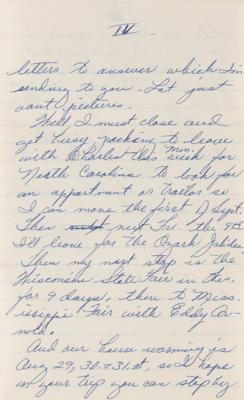 IV
letters to answer which I'm
sending to you. Lot just
want pictures.
Well I must close and
get busy packing to leave
with Charlie this Mon. week for
North Carolina to look for
an appartment or trailor so
I can move the first of Sept.
Then next Fri. the 9th
I'll leave for the Ozark Jubilee.
Then my next stop is the
Wisconsin State Fair in
for 9 days, then to Miss-
issippi Fair with Eddy Ar-
nold.
And our house warming is
Aug 29, 30 + 31st, so I hope
in your trip you can stop by